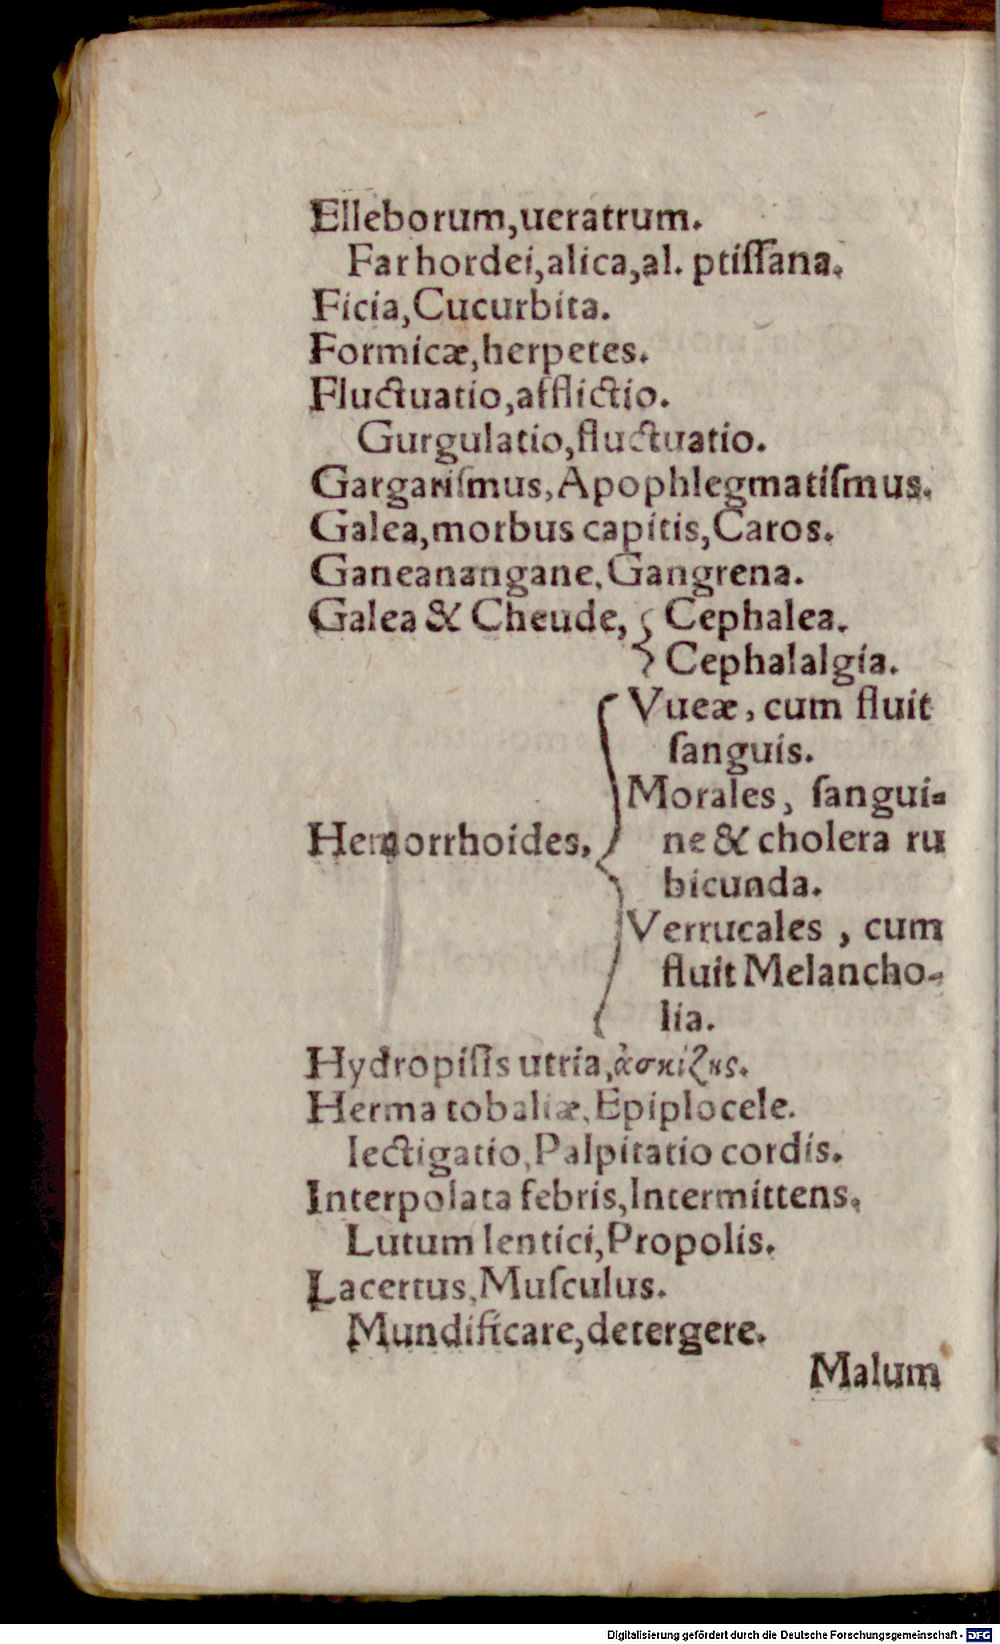 Elleborum,ueratrum.
Far hordei,alica,al. ptiſſana.
Ficia,Cucurbita.
Formicæ,herpetes.
Fluctuatio,afflictio.
Gurgulatio,fluctuatio.
Gargariſmus,Apophlegmatiſmus.
Galea,morbus capitis,Caros.
Ganeanangane,Gangrena.
Galea & Cheude, Cephalea.
Cephalalgia.
Vueæ, cum fluit
ſanguis.
Morales, ſangui-
Hemorrhoides, ne & cholera ru
bicunda.
Verrucales , cum
fluit Melancho-
lia.
Hydropiſis utria,ἀσκίζης.
Herma tobaliæ,Epiplocele.
Iectigatio,Palpitatio cordis.
Interpolata febris,Intermittens.
Lutum lentici,Propolis.
Lacertus,Muſculus.
Mundificare,detergere.
Malum
Digitalisierung gefördert durch die Deutsche Forschungsgemeinschaft - DFG